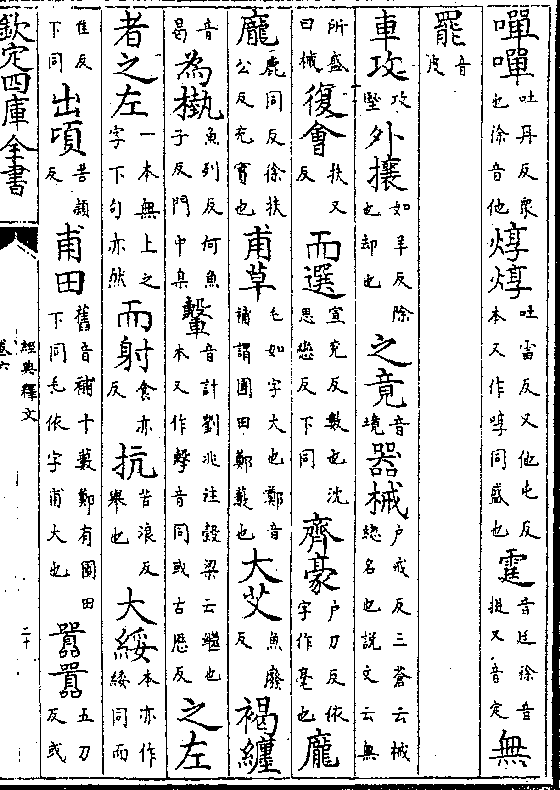 嘽嘽吐丹反衆也徐音他焞焞吐雷反又他屯反本又作啍同盛也霆音廷徐音挺又音定無
罷音波
車攻攻堅外攘如羊反除也却也之竟音境器械户戒反三蒼云械總名也説文云無
所盛曰械復會扶又反而選宣兖反數也沈思戀反下同齊豪户刀反依字作毫也龐
龎鹿同反徐扶公反充實也甫草毛如字大也鄭音補謂圃田鄭藪也大艾魚廢反褐纏
音曷為槸魚列反何魚子反門中臬轚音計劉兆注穀梁云繼也本又作擊音同或古歷反之左
者之左一本無上之字下句亦然而射食亦反抗苦浪反舉也大綏本亦作緌同而
隹反下同出頃苦頴反甫田舊音補十藪鄭有圃田下同毛依字甫大也嚻嚻五刀反或
欽定四庫全書
經典釋文
卷六
二十